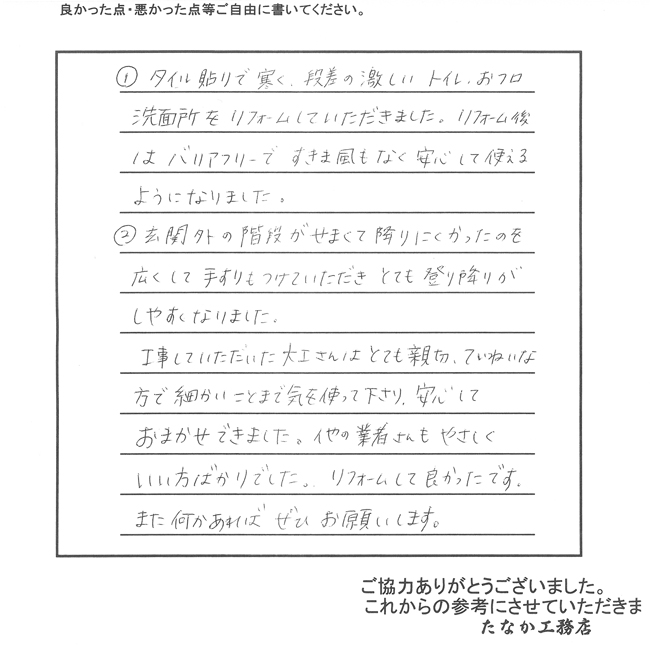 良かった点・悪かった点等ご自由に書いてください。
① タイル貼りで寒く、段差の激しい トイレ、おフロ
洗面所を リフォームしていただきました。リフォーム後
は バリアフリーで すきま風もなく 安心して使える
ようになりました。
② 玄関外の階段がせまくて降りにくかったのを
広くして 手すりもつけていただき とても 登り降りが
しやすくなりました。
工事していただいた 大工さんは とても 親切、ていねいな
方で 細かいことまで気を使って下さり、安心して
おまかせできました。他の業者さんも やさしく
いい方ばかりでした。 リフォームして 良かったです。
また何かあれば ぜひ お願いします。
ご協力ありがとうございました。
これからの参考にさせていただきま
たなか工務店